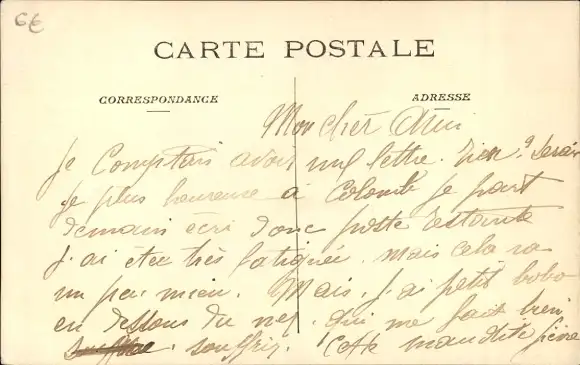 CARTE POSTALE
CORRESPONDANCE
ADRESSE
Mon cher Ami
Je Comptais avoir une lettre. rien. Serai
Je plus heureuse à Colombo Je part
demain écri donc poste restante
J'ai étée très fatiguée. Mais cela va
un peu mieu. Mais, J'ai petit bobo
en dessous du nez. Qui me fait bien
souffrir. Cette maudite fièvre